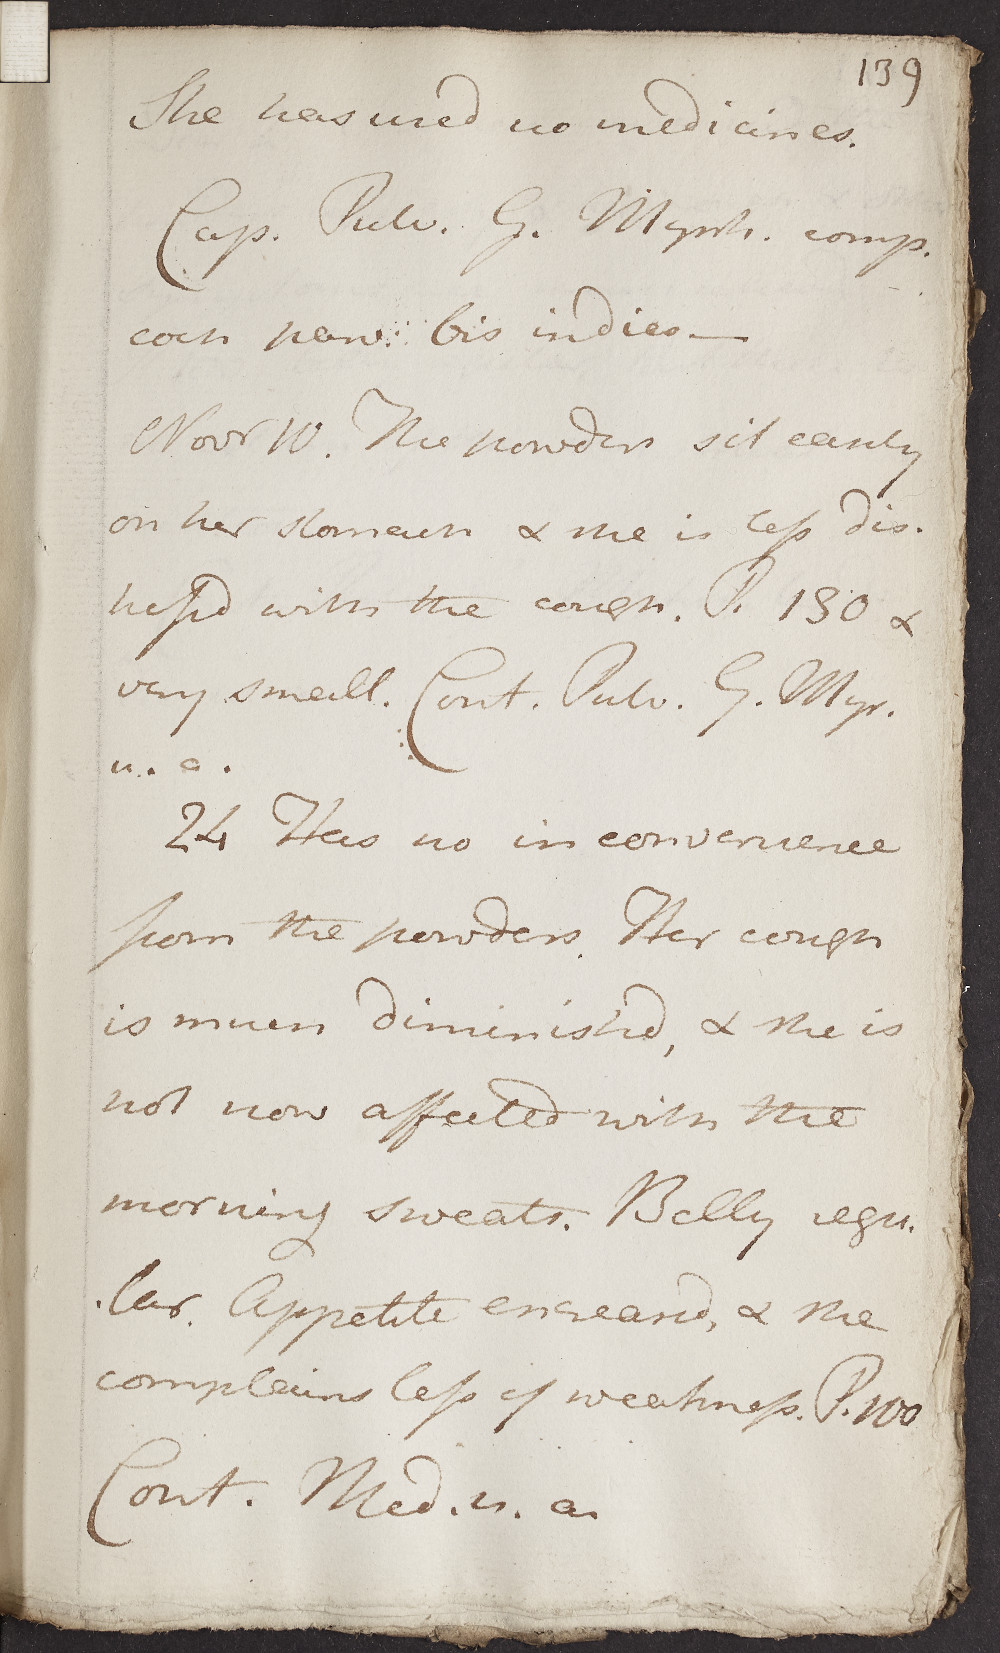 139
She has used no medicines.
Cap. Pulv. G. Myrrh. comp.
coch parv. bis indies—
Novr 10. The powders sit easily
on her stomach & she is less dis-
tressd with the cough. P. 130 &
very small. Cont. Pulv. G. Myr.
u. a.
24 Has no inconvenience
from the powders. Her cough
is much diminishd, & she is
not now affected with the
morning sweats. Belly regu-
-lar. Appetite encreasd, & she
complains less of weakness. P. 100
Cont. Med. u. a.